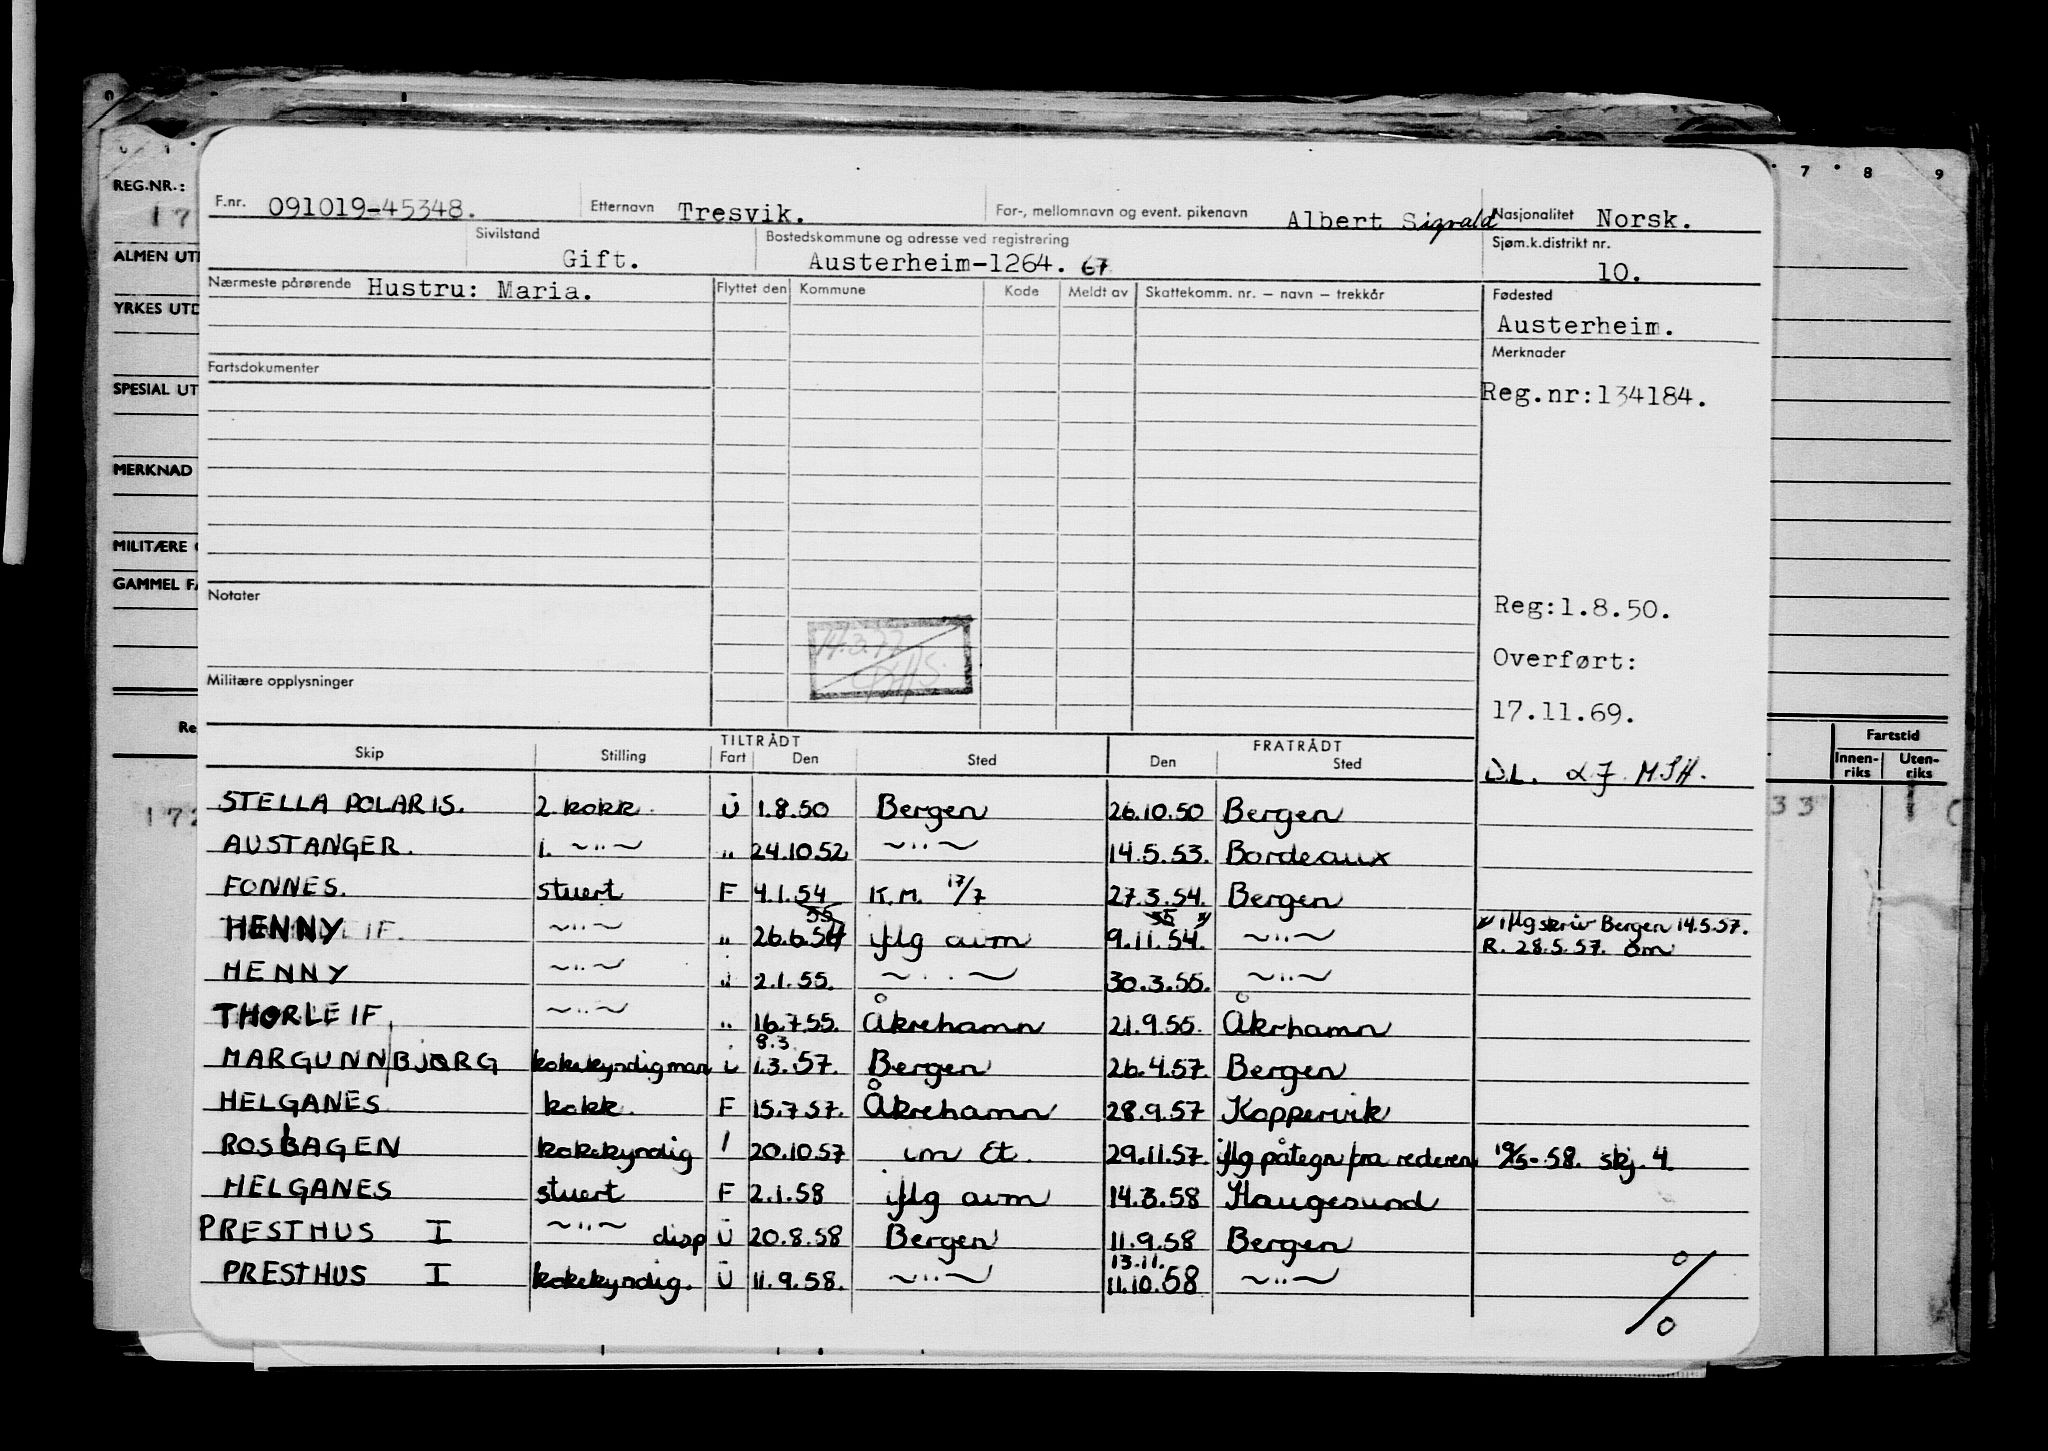 REG.NR.:
ALMEN UT
YRKES UTD
SPECIAL UT
MERKNAD
MILITÆRE
GAMMEL F
F.nr. 091019-45348. Etternavn Tresvik. For-, mellomnavn og event. pikenavn Albert Sigvald Nasjonalitet Norsk.
Sivilstand Gift. Bostedskommune og adresse ved registrering Austerheim-1264. 67 Sjøm.k.distrikt nr. 10.
Nærmeste pårørende Hustru: Maria. Flyttet den Kommune Kode Meldt av Skattekomm. nr. – navn – trekkår Fødested
Austerheim.
Fartsdokumenter Merknader
Reg.nr:134184.
Notater Reg:1.8.50.
14.3.77
Overført:
Militære opplysninger
17.11.69.
TILTRÅDT FRATRÅDT
Skip Stilling Fart Den Sted Den Sted
Fartstid
Innen-riks Uten-riks
STELLA POLARIS. 2. kokk. U 1.8.50 Bergen 26.10.50 Bergen
AUSTANGER. 1. ~"~ " 24.10.52 ~"~ 14.5.53. Bordeaux
FONNES. stuert F 4.1.54 K.M. 17/7 27.3.54. Bergen
HENNY ~"~ " 26.6.54 iflg avm 9.11.54. ~"~ iflg skriv Bergen 14.5.57.
R. 28.5.57. om
HENNY ~"~ " 2.1.55. ~"~ 30.3.55. ~"~
THORLEIF ~"~ " 16.7.55. Åkrehamn 21.9.55. Åkrhamn
8.3.
MARGUNNBJØRG kokekyndigman U 1.3.57. Bergen 26.4.57. Bergen
HELGANES kokk. F 15.7.57. Åkrehamn 28.9.57 Koppervik
ROSHAGEN kokekyndig I 20.10.57 29.11.57. iflg påtegn fra rederen 19/5-58. skj. 4.
HELGANES stuert F 2.1.58 iflg avm 14.3.58 Haugesund
PRESTHUS I ~"~ disp U 20.8.58 Bergen 11.9.58 Bergen
13.11.
PRESTHUS I kokekyndig. U 11.9.58. ~"~ 11.10.58 ~"~